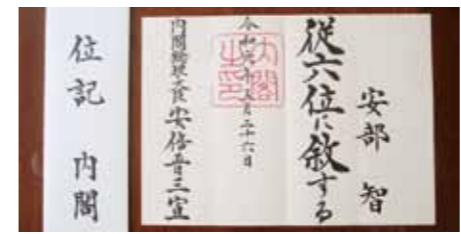 安部 智
従六位に叙する
令和元年五月二十六日
内閣之印
内閣総理大臣 安倍晋三 宣
位記 内閣